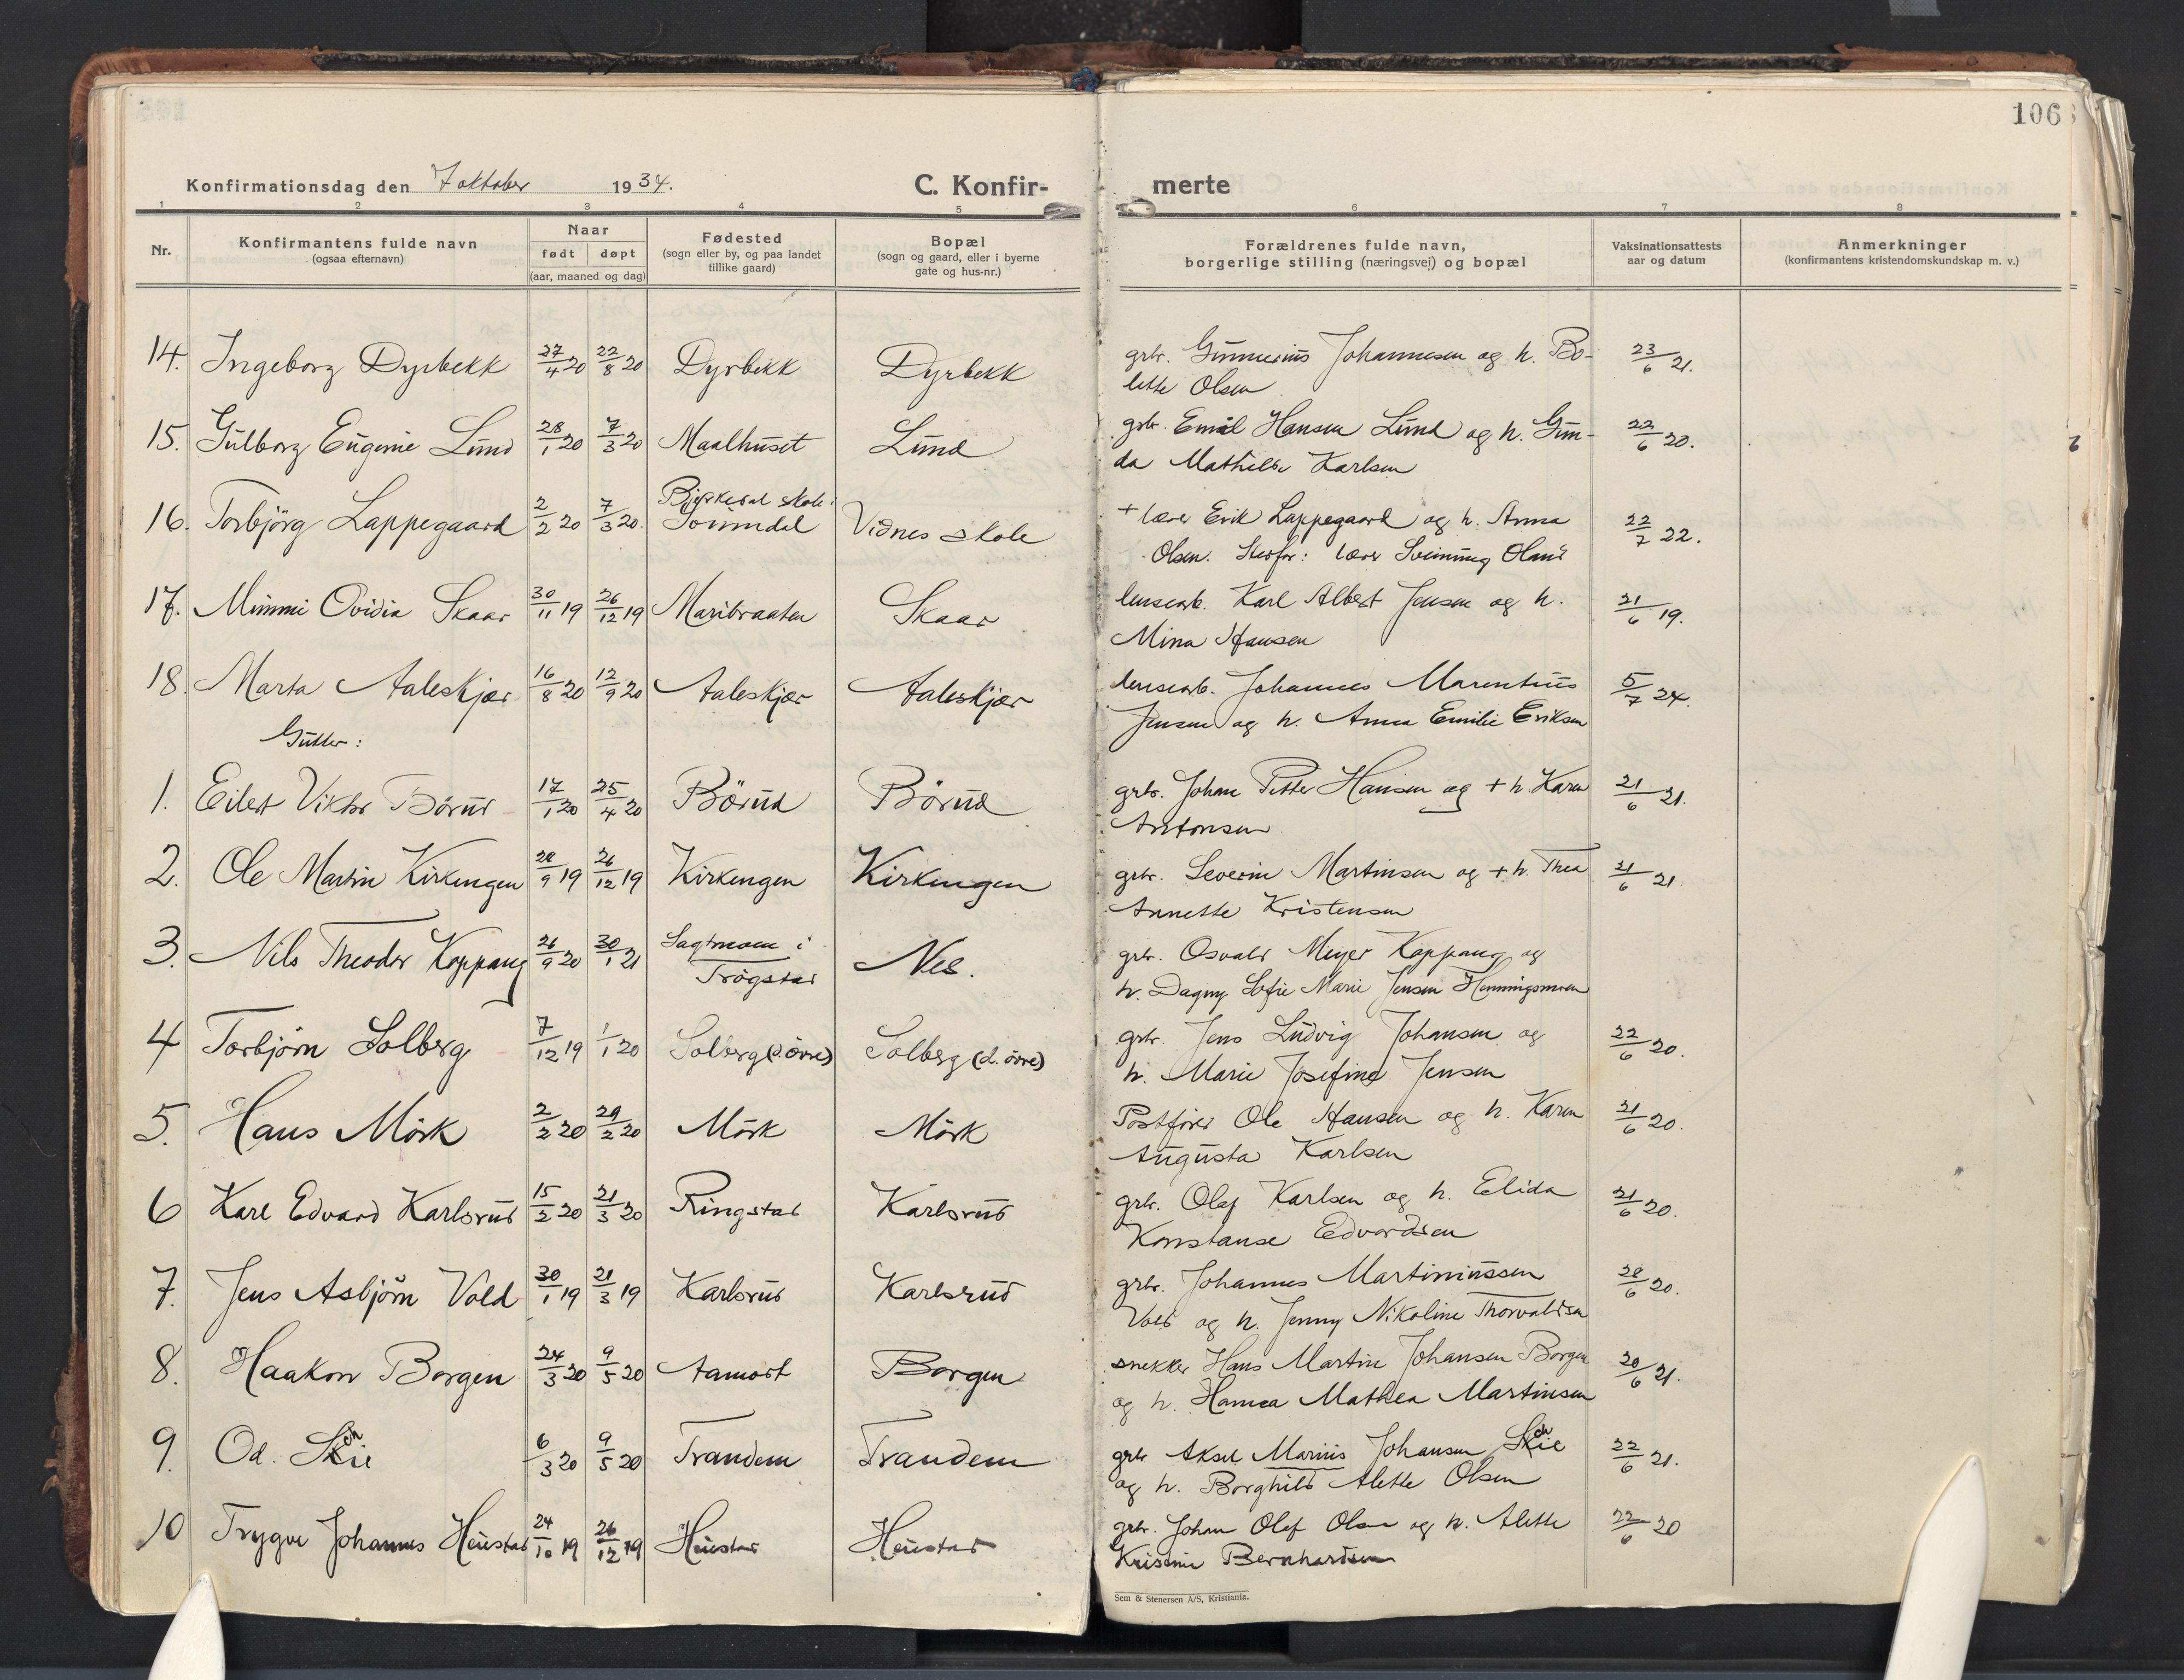 106
Konfirmationsdag den 7 oktober 1934.
C. Konfirmerte
1 2 3 4 5 6 7 8
Nr.
Konfirmantens fulde navn
(ogsaa efternavn)
Naar
født døpt
(aar, maaned og dag)
Fødested
(sogn eller by, og paa landet
tillike gaard)
Bopæl
(sogn og gaard, eller i byerne
gate og hus-nr.)
Forældrenes fulde navn,
borgerlige stilling (næringsvej) og bopæl
Vaksinationsattests
aar og datum
Anmerkninger
(konfirmantens kristendomskundskap m. v.)
14. Ingeborg Dyrbekk 27/4 20 22/8 20 Dyrbekk Dyrbekk grbr. Gunnerius Johannesen og h. Bo- 23/6 21.
lette Olsen
15. Gulborg Eugenie Lund 28/1 20 7/3 20 Maalhuset Lund grbr. Emil Hansen Lund og h. Gun- 22/6 20.
da Mathilde Karlsen
16. Torbjörg Lappegaard 2/2 20 7/3 20. skole Vidnes skole + lærer Erik Lappegaard og h. Anna 22/7 22.
Olsen. Stedfar: lærer
17. Mimmi Ovidia Skaar 30/11 19 26/12 19 Maribraaten Skaar lensearb. Karl Albert Jensen og h. 21/6 19.
Mina Hansen
18. Marta Aaleskjær 16/8 20 12/9 20 Aaleskjær Aaleskjær lensearb. Johannes Marentius 5/7 24.
Jensen og h. Anna Emilie Eriksen
Gutter:
1. Eilert Viktor Börud 17/1 20 25/4 20 Börud Börud grbr. Johan Petter Hansen og + h. Karen 21/6 21.
Antonsen
2. Ole Martin Kirkengen 28/9 19 26/12 19 Kirkengen Kirkengen grbr. Severin Martinsen og + h. Thea 21/6 21.
Annette Kristensen
3. Nils Theodor Koppang 26/9 20 30/1 21 i Trögstad Nes. grbr. Osvald Meyer Koppang og
h. Dagny Sofie Marie Jensen Henningsmoen
4 Torbjörn Solberg 7/12 19 1/1 20 Solberg (d. övre) Solberg (d. övre) grbr. Jens Ludvig Johansen og 22/6 20.
h. Marie Josefine Jensen
5. Hans Mörk 2/2 20 29/2 20 Mörk Mörk Postförer Ole Hansen og h. Karen 21/6 20.
Augusta Karlsen
6 Karl Edvard Karlsrud 15/2 20 21/3 20 Ringstad Karlsrud grbr. Olaf Karlsen og h. Elida 21/6 20.
Konstanse Edvardsen
7. Jens Asbjörn Vold 30/1 19 21/3 19 Karlsrud Karlsrud grbr. Johannes Martiniussen 28/6 20.
Vold og h. Jenny Nikoline Thorvaldsen
8. Haakon Borgen 24/3 20 9/5 20 Aamodt Borgen snekker Hans Martin Johansen Borgen 20/6 21.
og h. Hanna Mathea Martinsen
9. Od. Skie 6/3 20 9/5 20 Trandem Trandem grbr Aksel Marius Johansen Skie 22/6 21.
og h. Borghild Alette Olsen
10 Trygve Johannes Heiestad 24/10 19 26/12 19 Heiestad Heiestad grbr. Johan Olaf Olsen og h. Alette 22/6 20
Kristine Bernhardsen
Sem & Stenersen A/S, Kristiania.